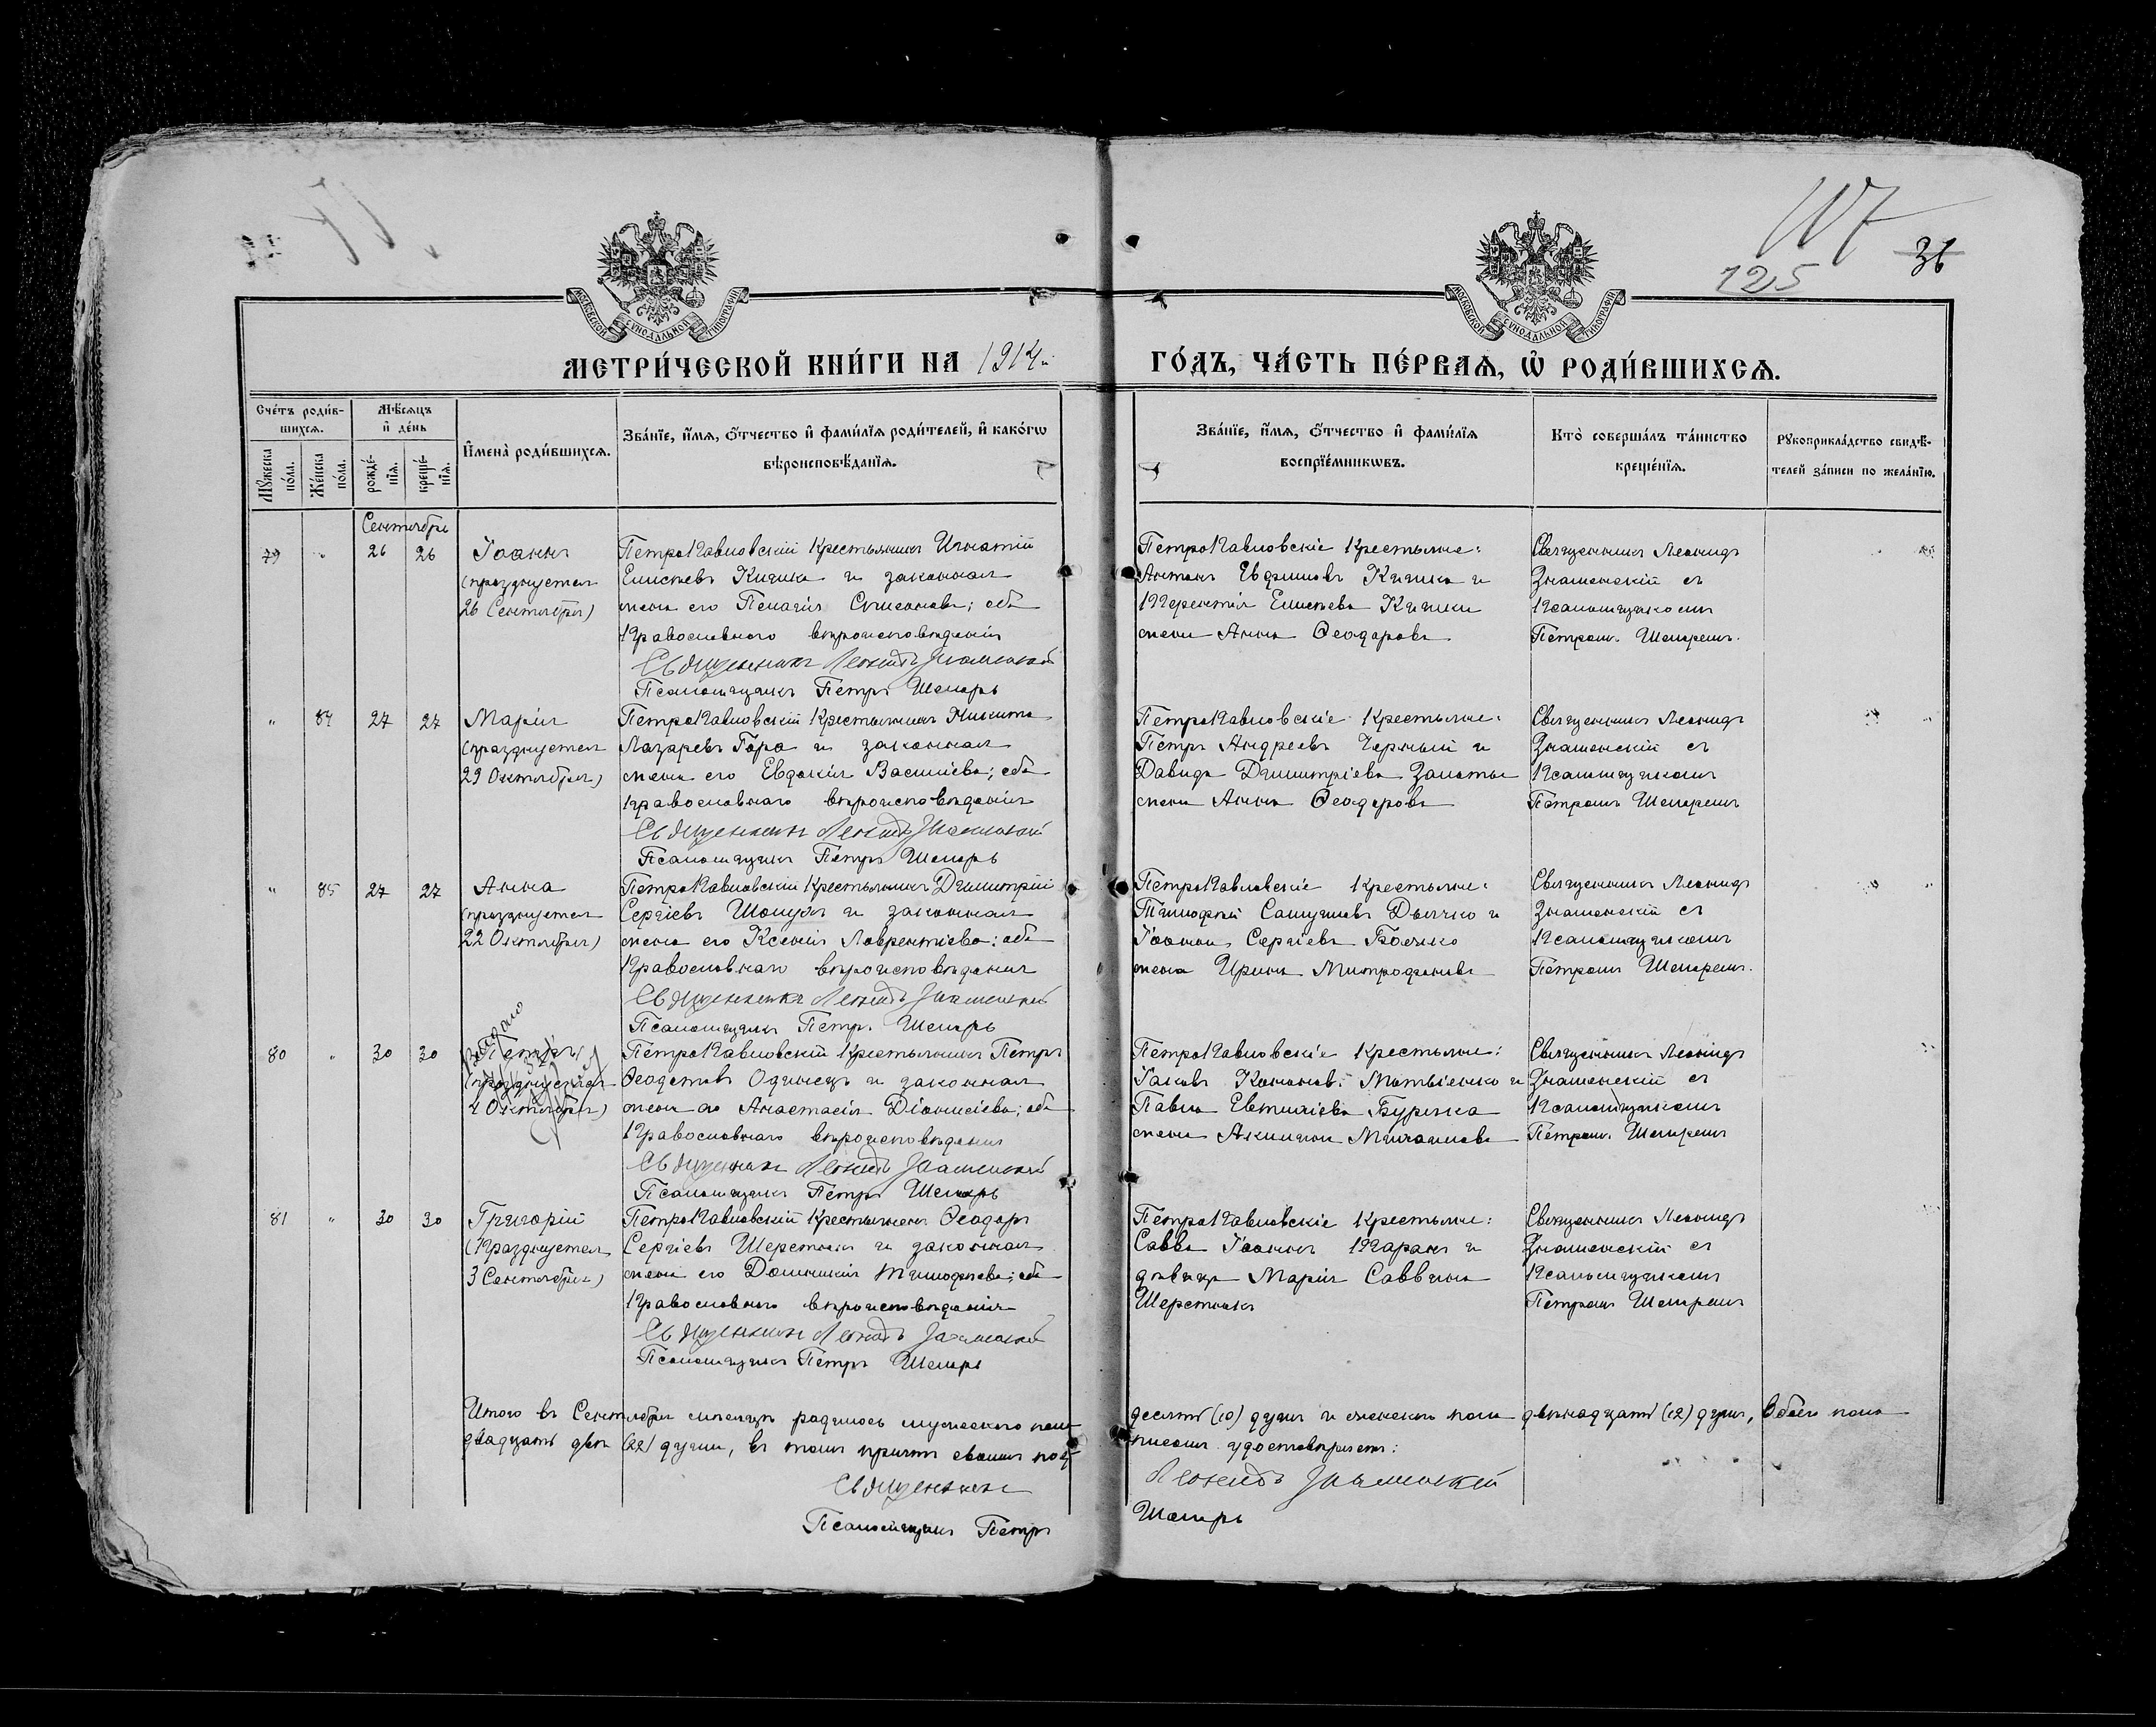 117
125
36
МОСКОВСКОЙ СУНОДАЛЬНОЙ ТИПОГРАФІИ
МОСКОВСКОЙ СУНОДАЛЬНОЙ ТИПОГРАФІИ
МЕТРИ́ЧЕСКОЙ КНИ́ГИ НА 1914й ГО́ДЪ, ЧА́СТЬ ПЕ́РВАѦ, Ѡ҆ РОДИ́ВШИХСѦ.
Сче́тъ роди́в-
шихсѧ.
Мѣ́сѧцъ
и҆ де́нь
Мꙋ́жеска
по́ла.
Же́нска
по́ла.
рожде́-
нїѧ.
креще́-
нїѧ.
И҆мена̀ роди́вшихсѧ.
Зва́нїе, и҆́мѧ, ѻ҆́тчество и҆ фами́лїѧ роди́телей, и҆ како́гѡ
вѣроисповѣ́данїѧ.
Зва́нїе, и҆́мѧ, ѻ҆́тчество и҆ фами́лїѧ
воспрїе́мникѡвъ.
Кто̀ соверша́лъ та́инство
креще́нїѧ.
Рꙋкоприкла́дство свидѣ́-
телей за́писи по жела́нїю.
Сентября
79 " 26 26 Іоаннъ
(празднуется
26 Сентября)
ПетроПавловскій Крестьянинъ Игнатій
Елисѣевъ Кичика и законная
жена его Пелагія Симеонова; оба
Православнаго вѣроисповѣданія
Священникъ Леонидъ Знаменскій
Псаломщикъ Петръ Шемарь
ПетроПавловскіе Крестьяне:
Антонъ Евфимовъ Кичика и
Терентія Елисѣева Кичики
жена Анна Ѳеодорова
Священникъ Леонидъ
Знаменскій съ
Псаломщикомъ
Петромъ Шемаремъ.
" 84 27 27 Марія
(празднуется
29 Октября)
ПетроПавловскій Крестьянинъ Никита
Лазаревъ Гора и законная
жена его Евдокія Василіева; оба
православнаго вѣроисповѣданія
Священникъ Леонидъ Знаменскій
Псаломщикъ Петръ Шемарь
ПетроПавловскіе Крестьяне:
Петръ Андреевъ Черный и
Давида Димитріева
жена Анна Ѳеодорова
Священникъ Леонидъ
Знаменскій съ
Псаломщикомъ
Петромъ Шемаремъ
" 85 27 27 Анна
(празднуется
22 Октября)
ПетроПавловскій Крестьянинъ Димитрій
Сергіевъ и законная
жена его Ксенія Лаврентіева; оба
Православнаго вѣроисповѣданія
Священникъ Леонидъ Знаменскій
Псаломщикъ Петръ Шемарь
ПетроПавловскіе Крестьяне:
Тимофей Самуиловъ Дьячко и
Іоанна Сергіева Боечко
жена Ирина Митрофанова
Священникъ Леонидъ
Знаменскій съ
Псаломщикомъ
Петромъ Шемаремъ.
80 " 30 30 Петръ
(празднуется
4 Октября)
ПетроПавловскій Крестьянинъ Петръ
Ѳеодотовъ Одинецъ и законная
жена его Анастасія Діонисіева; оба
Православнаго вѣроисповѣданія
Священникъ Леонидъ Знаменскій
Псаломщикъ Петръ Шемарь
ПетроПавловскіе Крестьяне:
Іаковъ Кононовъ Матвіенко и
Павла Евтихіева Буряка
жена Акилина Михаилова
Священникъ Леонидъ
Знаменскій съ
Псаломщикомъ
Петромъ Шемаремъ
81 " 30 30 Григорій
(Празднуется
3 Сентября)
ПетроПавловскій Крестьянинъ Ѳеодоръ
Сергіевъ Шерстюкъ и законная
жена его Домникія Тимофеева; оба
Православнаго вѣроисповѣданія
Священникъ Леонидъ Знаменскій
Псаломщикъ Петръ Шемарь
ПетроПавловскіе Крестьяне:
Савва Іоанновъ Таранъ и
дѣвица Марія Саввина
Шерстюкъ
Священникъ Леонидъ
Знаменскій съ
Псаломщикомъ
Петромъ Шемаремъ
Итого въ Сентябрѣ мѣсяцѣ родилось мужескаго пола десять (10) душъ и женскаго пола двѣнадцать (12) душъ, Обоего пола
двадцать двѣ (22) души, въ томъ причтъ своимъ подписомъ удостовѣряетъ:
Священникъ Леонидъ Знаменскій
Псаломщикъ Петръ Шемарь